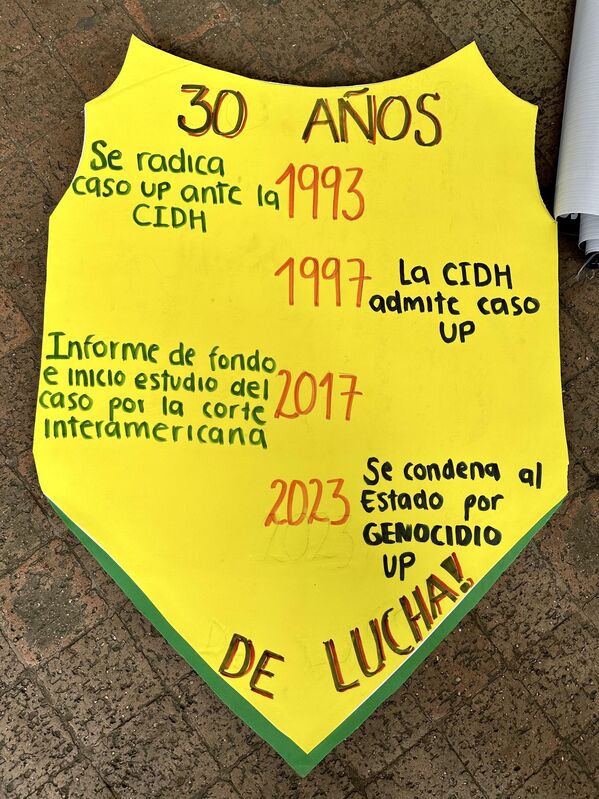 30 AÑOS
Se radica
caso UP ante la
CIDH
1993
1997
La CIDH
admite caso
UP
Informe de fondo
e inicio estudio del
caso por la corte
interamericana
2017
2023
Se condena al
Estado por
GENOCIDIO
UP
DE LUCHA!